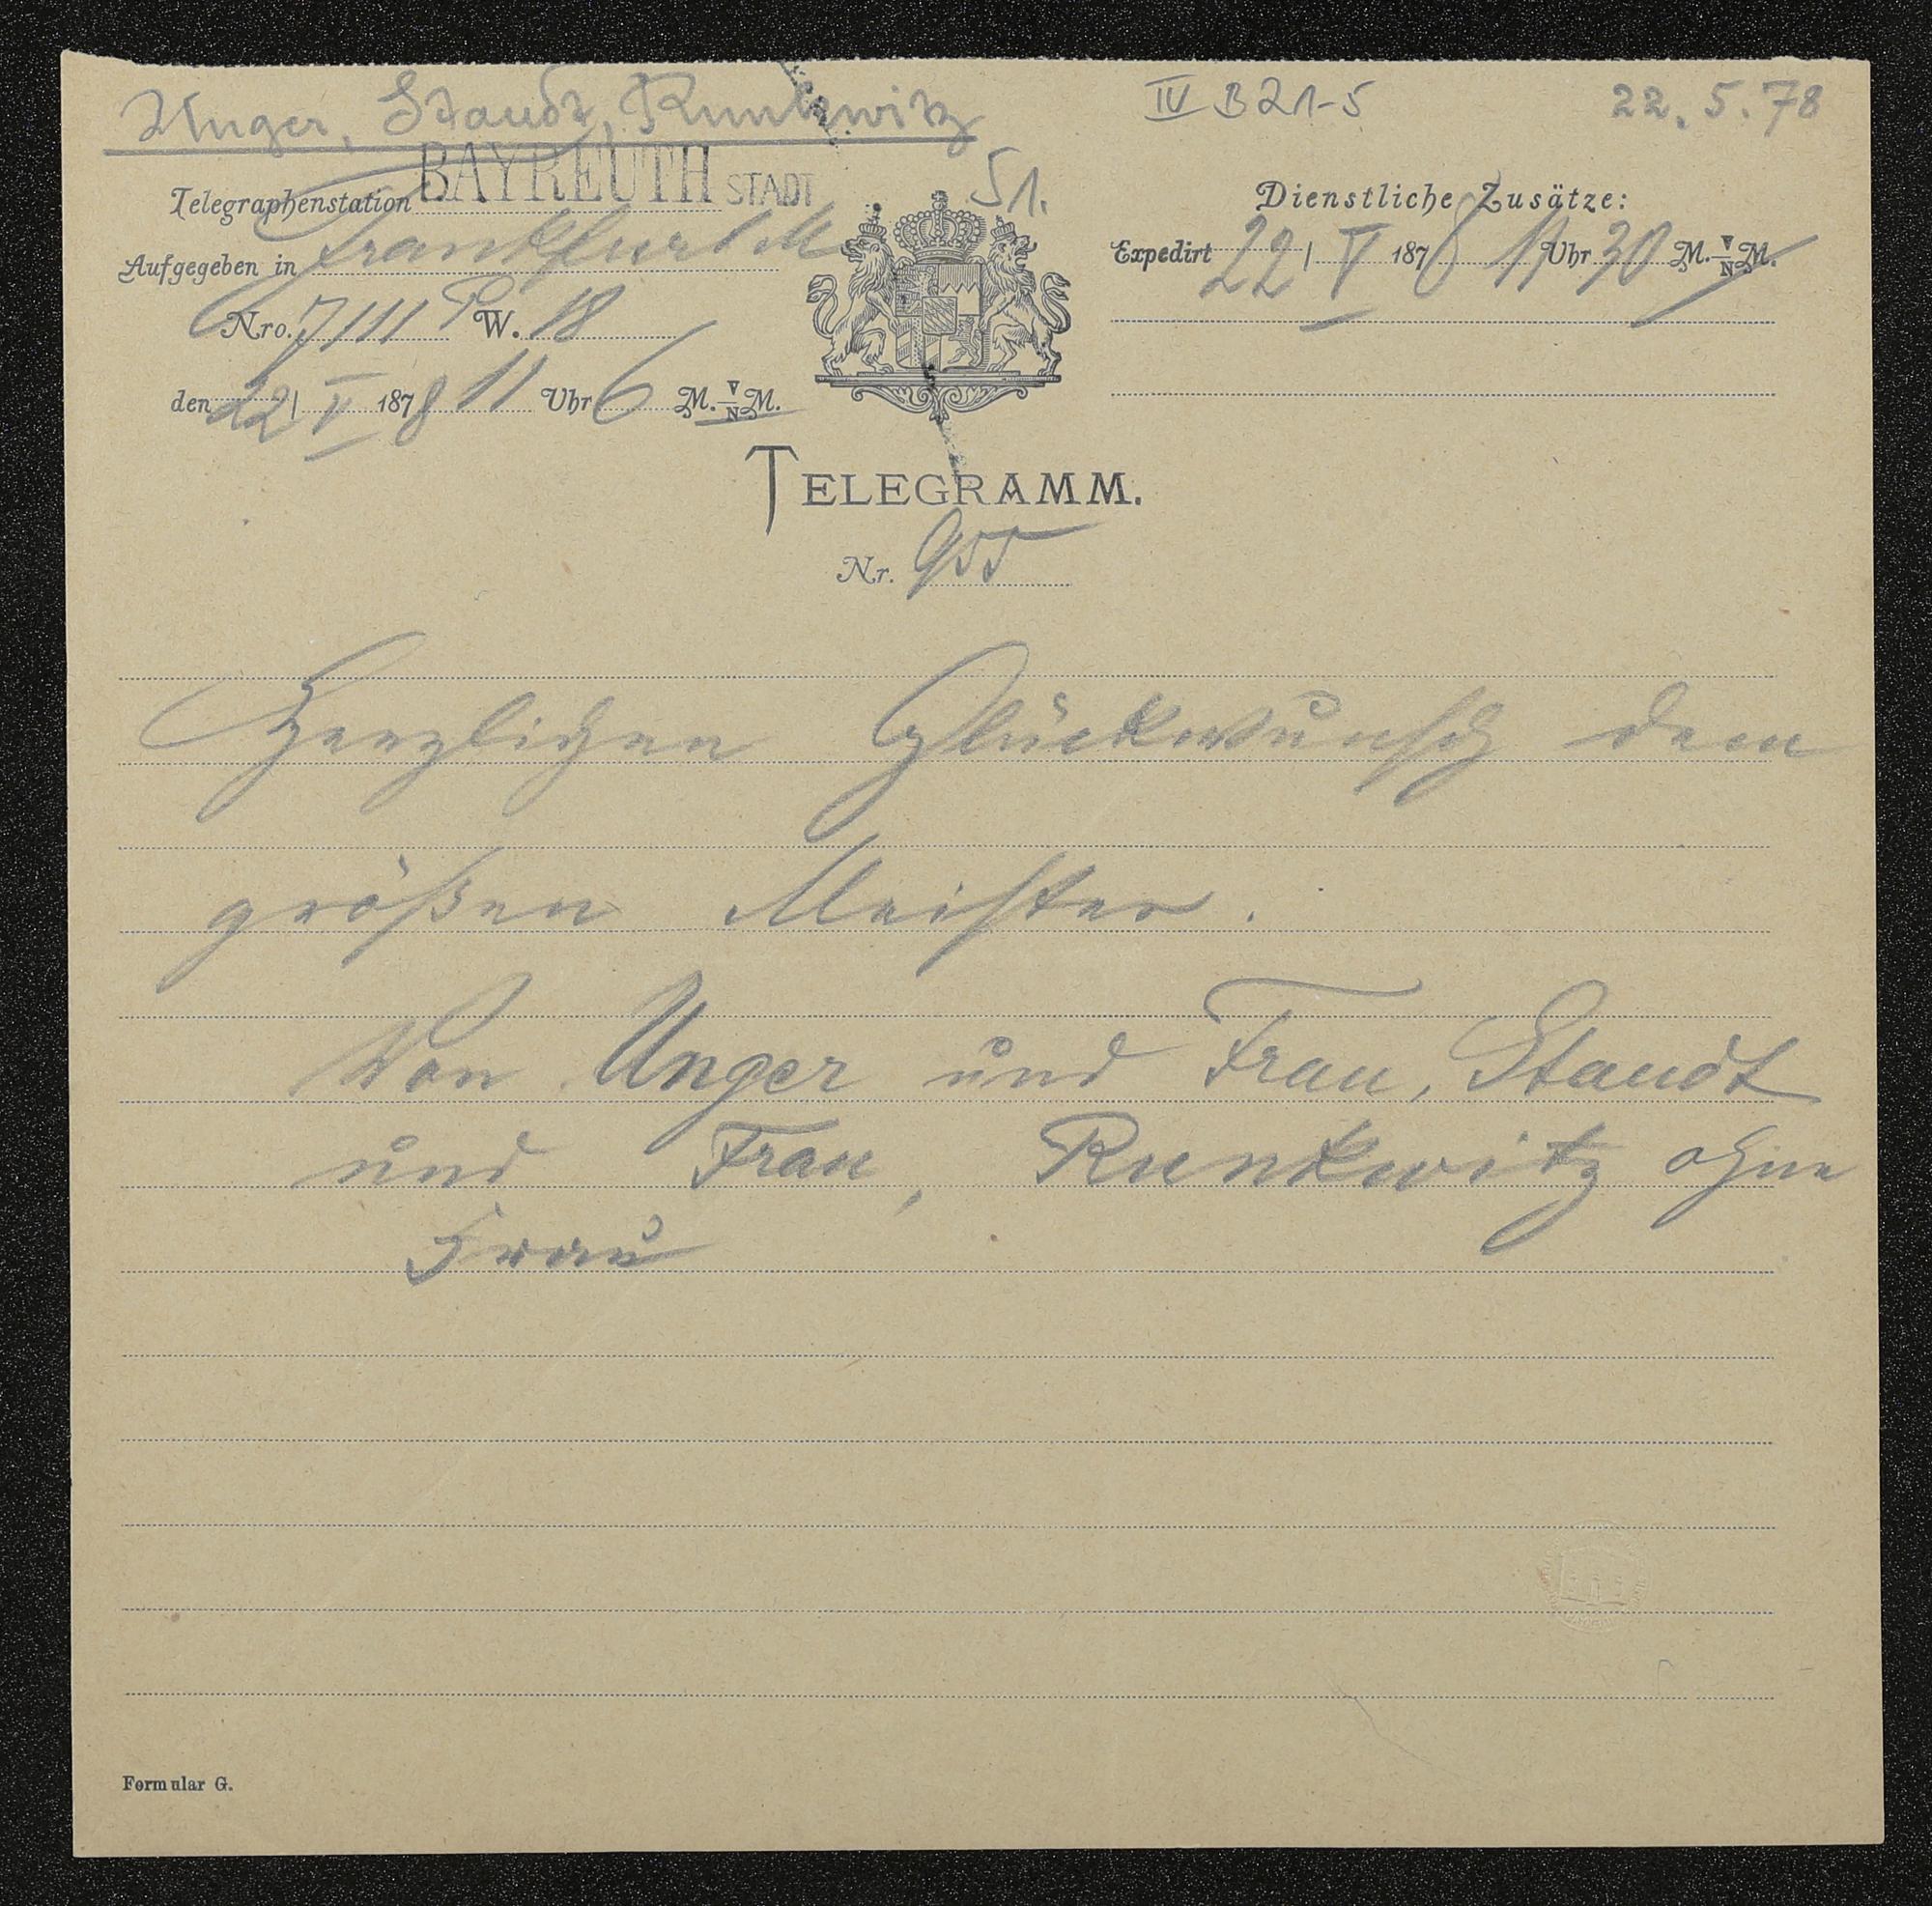 Unger, Staudt, Runkwitz
IV B 21-5
22. 5. 78
51.
Telegraphenstation BAYREUTH STADT
Aufgegeben in Frankfurt M
Nro. 7111 W. 18
den 22 / V 1878 11 Uhr 6 M. V/N M.
Dienstliche Zusätze:
Expedirt 22 / V 1878 11 Uhr 30 M. V/N M.
TELEGRAMM.
Nr. 955
Herzlichen Glückwunsch dem
größen Meister.
Von Unger und Frau, Staudt
und Frau, Runkwitz ohne
Frau
Formular G.